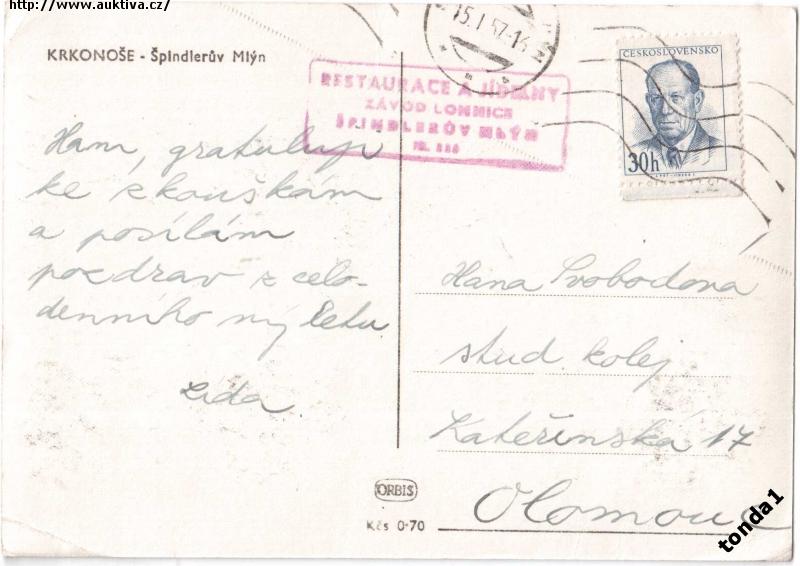 http://www.auktiva.cz/
KRKONOŠE - Špindlerův Mlýn
15.I.57-1
RESTAURACE A JÍDELNY
ZÁVOD LOMNICE
ŠPINDLERŮV MLÝN
ČESKOSLOVENSKO
30h
Hani, gratuluji
ke zkouškám
a posílám
pozdrav z celo-
denního výletu
Lída
Hana Svobodova
stud. kolej
Kateřinská 17
Olomouc
ORBIS
Kčs 0·70
tonda1